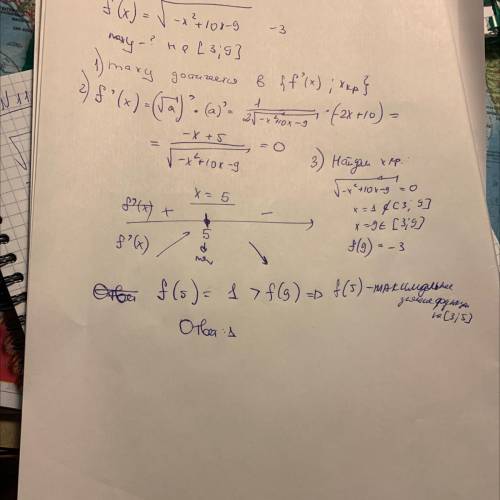 f'(x) = √-x²+10x-9 -3
maxy-? на [3;9]
1) maxy достигается в {f'(x); xкр}
2) f'(x) = (√a)' · (a)' = 1/2√-x²+10x-9 · (-2x+10) =
= -x+5/√-x²+10x-9 = 0
3) Найдем xкр:
√-x²+10x-9 = 0
x=1 ∉ [3;9]
x=9 ∈ [3;9]
f(9) = -3
x = 5
f'(x) + -
5
f'(x)
max
Ответ f(5) = 1 > f(9) => f(5) - максимальное
значение функции
на [3;5]
Ответ: 1
N11